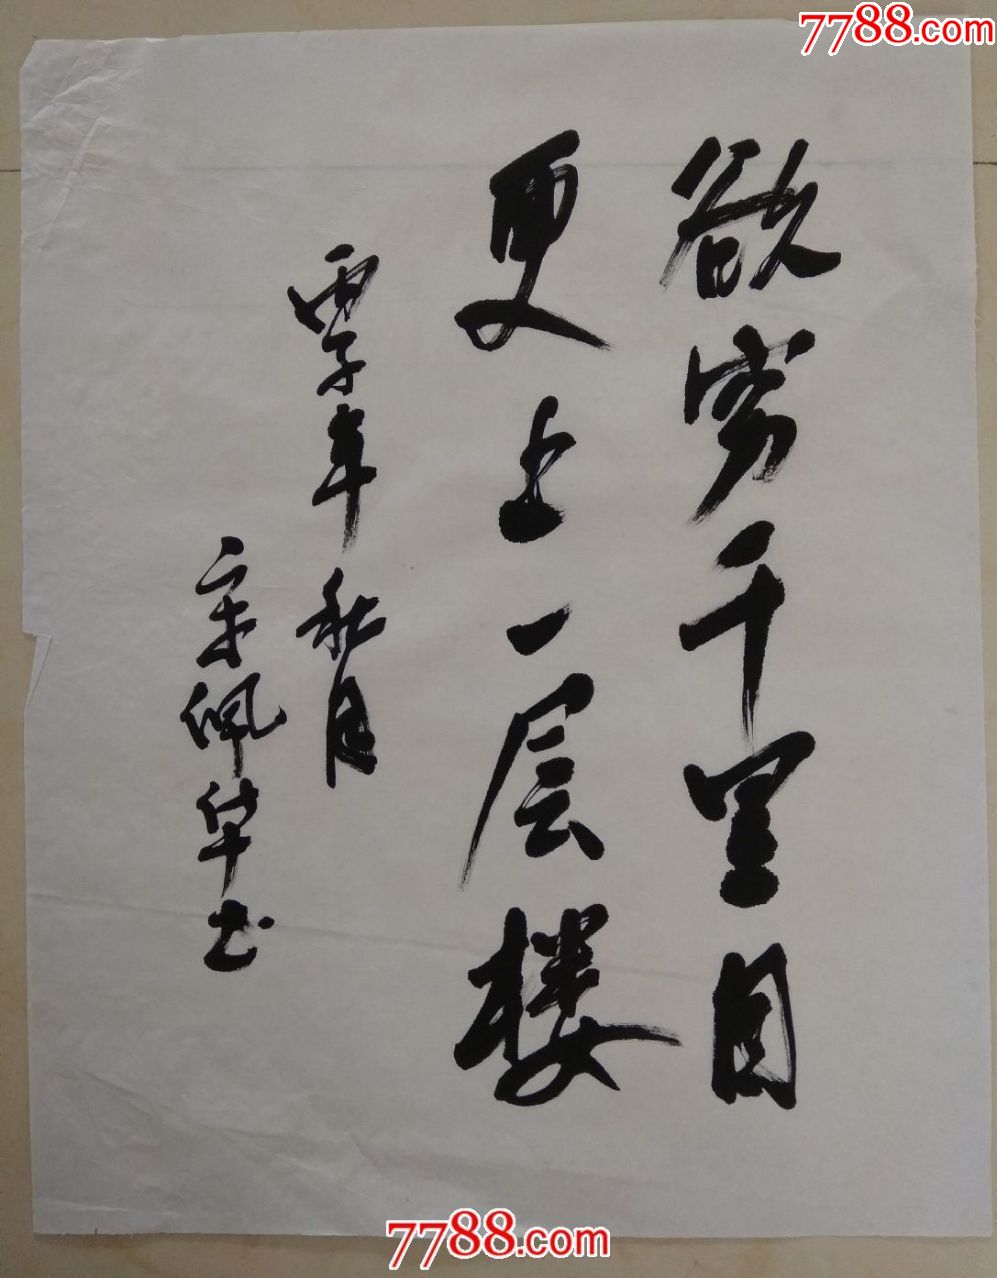 7788.com
欲穷千里目
更上一层楼
丙子年秋月
宋佩华书
7788.com